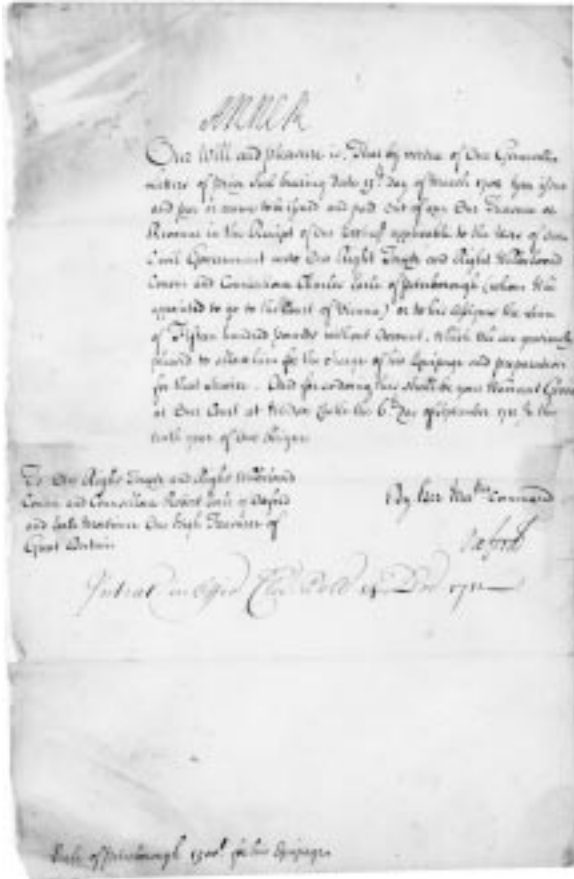 ANNE R
Our Will and pleasure is, That by vertue of Our Generall
Letters of Privy Seal bearing date 13th day of March 1701 you issue
and pay or cause to be issued and paid out of any Our Treasure or
Revenue in the Receipt of Our Excheqr applicable to the Uses of Our
Civil Government unto Our Right Trusty and Right Welbeloved
Cousin and Councillour Charles Earle of Peterborough (whom We
appointed to go to the Court of Vienna) or to his Assignes the summe
of Fifteen hundred pounds without Account, Which We are graciously
pleased to allow him for the charge of his Equipage and preparations
for that service. And for so doing this shall be your Warrant Given
at Our Court at Windsor Castle the 6th Day of September 1711 In the
tenth year of Our Reigne
To Our Right Trusty and Right Welbeloved
Cousin and Councillour Robert Earle of Oxford
and Earle Mortimer Our High Treasurer of
Great Britain
By her Mats Command
Oxford
Intrat in Offic 1711
Earle of Peterborough 1500l for his Equipage